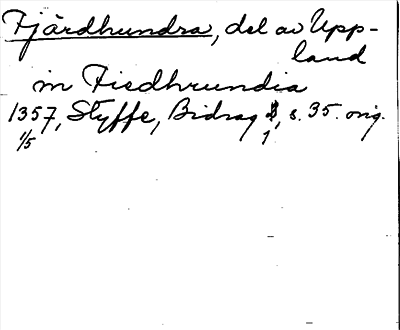 Fjärdhundra, del av Upp-
land
in Fiedhrundia
1357, Styffe, Bidrag 1, s. 35. orig.
1/5